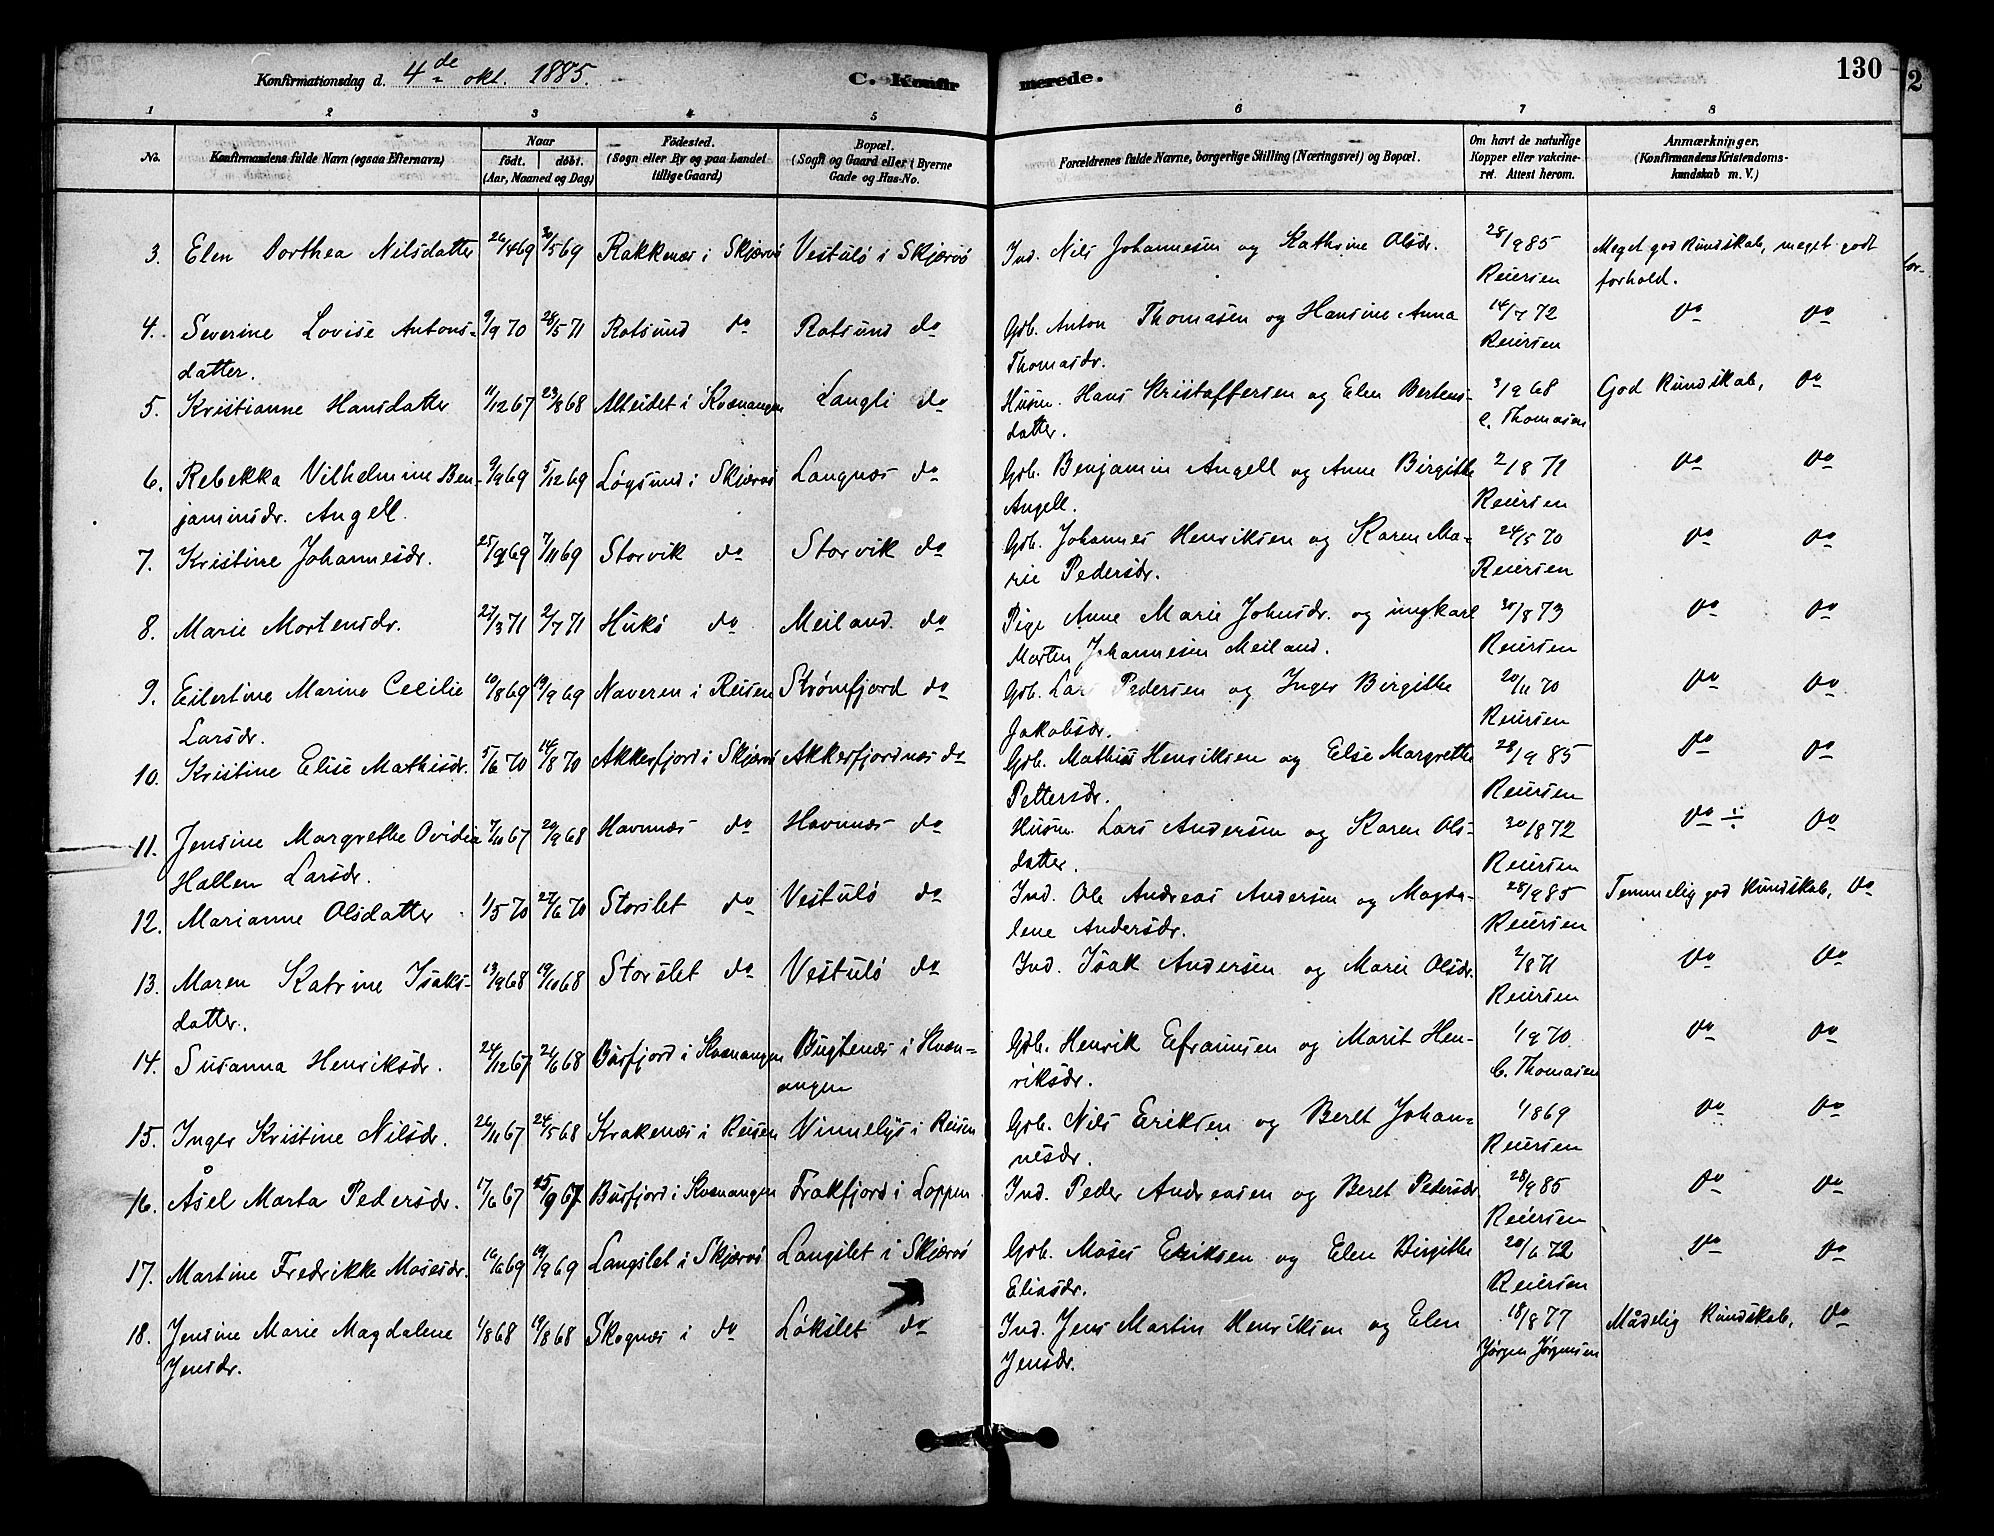 Konfirmationsdag d. 4de okt. 1885.
C. Konfirmerede.
130
1 2 3 4 5 6 7 8
No.
Konfirmandens fulde Navn (ogsaa Efternavn)
Naar
født. døbt.
(Aar, Maaned og Dag)
Födested.
(Sogn eller By og paa Landet
tillige Gaard)
Bopæl.
(Sogn og Gaard eller i Byerne
Gade og Hus-No.
Forældrenes fulde Navne, borgerlige Stilling (Næringsvei) og Bopæl.
Om havt de naturlige
Kopper eller vakcine-
ret. Attest herom.
Anmærkninger.
(Konfirmandens Kristendoms-
kundskab m. V.)
3. Elen Dorthea Nilsdatter 26/4 69 30/5 69 Rakkenæs i Skjærvö Vestulö i Skjærvö Ind. Nils Johannesen og Kathrine Olsdr. 28/9 85 Meget god Kundskab, meget godt
Reiersen forhold.
4. Severine Lovise Antons- 9/9 70 28/5 71 Rotsund do Rotsund do Gdb. Anton Thomasen og Hansine Anna 14/7 72 do do
datter. Thomasdr. Reiersen
5. Kristianne Hansdatter 11/12 67 23/8 68 Alteidet i Kvænangen Langli do Husm. Hans Kristaffersen og Elen Bertens- 3/9 68 God Kundskab, do
datter. C. Thomasen
6. Rebekka Vilhelmine Ben- 9/9 69 5/12 69 Løgsund i Skjærvö Langnæs do Gdb. Benjamin Angell og Anne Birgitte 2/8 71 do do
jaminsdr. Angell. Angell. Reiersen
7. Kristine Johannesdr. 25/9 69 7/11 69 Storvik do Storvik do Gdb. Johannes Henriksen og Karen Ma- 24/5 70 do do
rie Pedersdr. Reiersen
8. Marie Mortensdr. 27/3 71 2/7 71 Hukö do Meiland. do Pige Anne Marie Johnsdr. og ungkarl 30/8 73 do do
Morten Johannesen Meiland. Reiersen
9. Eilertine Marine Cecilie 19/8 69 19/9 69 Naveren i Reisen Strømfjord do Gdb. Lars Pedersen og Inger Birgitte 20/11 70 do do
Larsdr. Jakobsdr. Reiersen
10. Kristine Elise Mathisdr. 5/6 70 14/8 70 Akkerfjord i Skjærvö Akkerfjordnæs do Gdb. Mathis Henriksen og Else Margrethe 28/9 85 do do
Pettersdr. Reiersen
11. Jensine Margrethe Ovidia 7/10 67 20/9 68 Havnnæs do Havnnæs do Husm. Lars Andersen og Karen Ols- 30/8 72 do ÷ do
Hallen Larsdr. datter. Reiersen
12. Marianne Olsdatter 1/5 70 27/6 70 Storslet do Vestulö do Ind. Ole Andreas Andersen og Magda- 28/9 85 Temmelig god Kundskab, do
lene Andersdr. Reiersen
13. Maren Katrine Isaks- 13/9 68 19/10 68 Storslet do Vestulö do Ind. Isak Andersen og Marie Olsdr. 2/8 71 do do
datter. Reiersen
14. Susanna Henriksdr. 24/12 67 21/6 68 Burfjord i Kvænangen Bugtenæs i Kvæn- Gdb. Henrik Efraimsen og Marit Hen- 1/9 70 do do
angen riksdr. C. Thomasen
15. Inger Kristine Nilsdr. 26/11 67 24/5 68 Krakenæs i Reisen Vinnelys i Reisen Gdb. Nils Eriksen og Beret Johan- 1/8 69 do do
nesdr. Reiersen
16. Åsel Marta Pedersdr. 17/6 67 15/9 67 Burfjord i Kvænangen Frakfjord i Loppen Ind. Peder Andreasen og Beret Pedersdr 28/9 85 do do
Reiersen
17. Martine Fredrikke Mosesdr. 16/6 69 19/9 69 Langslet i Skjærvö Langslet i Skjærvö Gdb. Moses Eriksen og Elen Birgitte 20/6 72 do do
Eliasdr. Reiersen
18. Jensine Marie Magdalene 1/8 68 19/8 68 Skognæs i do Løkslet do Ind. Jens Martin Henriksen og Elen 18/8 77 Mådelig Kundskab, do
Jensdr. Jensdr. Jørgen Jørgensen